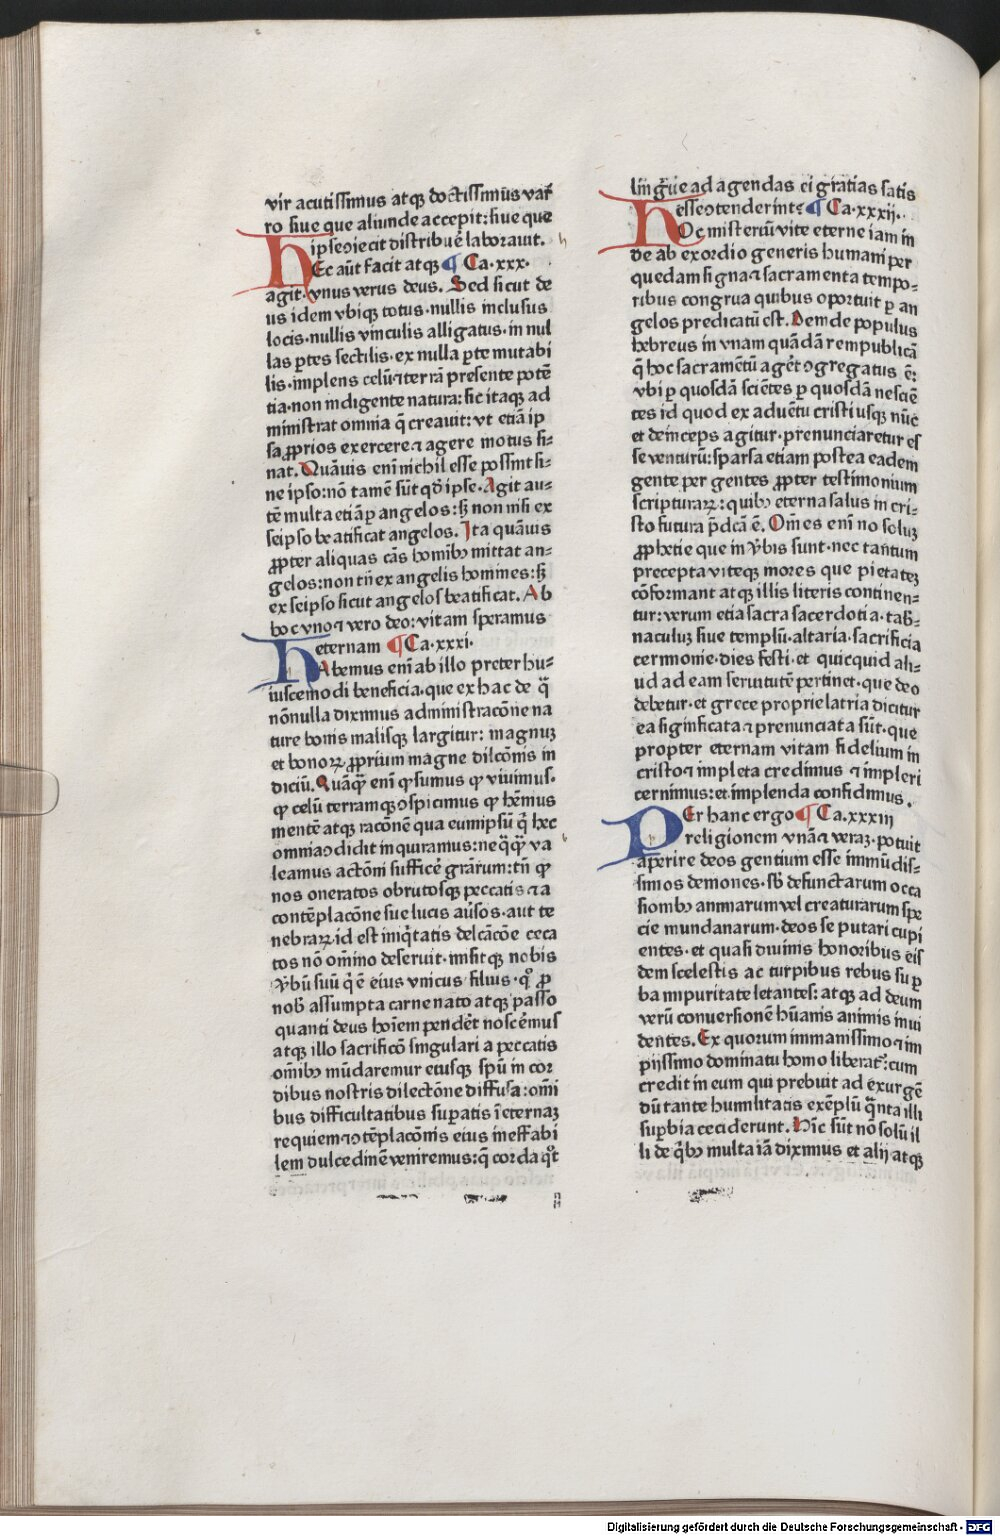 vir acutissimus atqꝫ doctissimus var
ro siue que aliunde accepit: siue que
ipse ↄiecit distribuē laborauit.
HEc aūt facit atqꝫ ¶ Ca.xxx.
agit. vnus verus deus. Sed sicut de
us idem vbiqꝫ totus. nullis inclusus
locis. nullis vinculis alligatus. in nul
las ꝑtes sectilis. ex nulla ꝑte mutabi
lis. implens celū ⁊ terrā presente potē
tia. non indigente natura: sic itaqꝫ ad
ministrat omnia q̄ creauit: vt etiā ip
sa ꝓprios exercere. ⁊ agere motus si-
nat. Quāuis enī nichil esse possint si-
ne ipso: nō tamē sūt qd̓ ipse. Agit au-
tē multa etiā ꝑ angelos: sꝫ non nisi ex
seipso beatificat angelos. Ita quāuis
ꝓpter aliquas cās homībꝰ mittat an-
gelos: non tn̄ ex angelis homines: sꝫ
ex seipso sicut angelos beatificat. Ab
hoc vno ⁊ vero deo: vitam speramus
eternam ¶ Ca.xxxi.
HAbemus enī ab illo preter hu-
iuscemodi beneficia. que ex hac de q̄
nōnulla diximus administracōne na
ture bonis malisqꝫ largitur: magnuꝫ
et bonoꝝ ꝓprium magne dilcōnis in
diciū. Quāqꝫ enī ꝙ sumus ꝙ viuimus.
ꝙ celū terramqꝫ ↄspicimus ꝙ hēmus
mentē atqꝫ racōnē qua eum ipsū q̄ hec
omnia ↄdidit inquiramus: neq̄q̄ va
leamus actōni sufficē grārum: tn̄ ꝙ
nos oneratos obrutosqꝫ peccatis ⁊ a
contēplacōne sue lucis aūsos. aut te
nebraꝝ. id est iniq̄tatis delcācōe ceca
tos nō omīno deseruit. misitqꝫ nobis
v̓bū suū q̄ ē eius vnicus filius. qͦ ꝓ
nob̓ assumpta carne nato atqꝫ passo
quanti deus hoīem pendēt noscēmus
atqꝫ illo sacrificō singulari a peccatis
omībꝰ mūdaremur eiusqꝫ spū in cor
dibus nostris dilectōne diffusa: omī
bus difficultatibus suꝑatis ī eternaꝫ
requiem ⁊ ↄtēplacōnis eius ineffabi
lem dulcedinē veniremus: q̄ corda qͦt
lingūe ad agendas ei gratias satis
esse ↄtenderint? ¶ Ca.xxxij.
HOc misteriū vite eterne iam in
de ab exordio generis humani per
quedam signa ⁊ sacramenta tempo-
ribus congrua quibus oportuit ꝑ an
gelos predicatū est. Deinde populus
hebreus in vnam quādā rempublicā
q̄ hoc sacramētū agēt ↄgregatus ē:
vbi ꝑ quosdā sciētes ꝑ quosdā nesciē
tes id quod ex aduētu cristi usqꝫ nūc
et deinceps agitur. prenunciaretur es
se venturū: sparsa etiam postea eadem
gente per gentes ꝓpter testimonium
scripturaꝝ: quibꝰ eterna salus in cri-
sto futura p̄dcā ē. Om̄es enī no soluꝫ
ꝓphetie que in v̓bis sunt. nec tantum
precepta viteqꝫ mores que pietateꝫ
cōformant atqꝫ illis literis continen-
tur: verum etia sacra sacerdotia. tab̄-
naculuꝫ siue templū. altaria. sacrificia
cerimonie. dies festi. et quicquid ali-
ud ad eam seruitutē pertinet. que deo
debetur. et grece proprie latria dicitur
ea significata ⁊ prenunciata sūt. que
propter eternam vitam fidelium in
cristo ⁊ impleta credimus ⁊ impleri
cernimus: et implenda confidimus.
PEr hanc ergo ¶ Ca.xxxiij
religionem vnā ⁊ veraꝫ. potuit
aperire deos gentium esse immūdis-
simos demones. sb̓ defunctarum occa
siombꝰ animarum vel creaturarum spe
cie mundanarum. deos se putari cupi
entes. et quasi diuinis honoribus eis
dem scelestis ac turpibus rebus suꝑ
ba impuritate letantes: atqꝫ ad deum
verū conuersionē hūanis animis inui
dentes. Ex quorum immanissimo ⁊ im
pijssimo dominatu homo liberat᷑: cum
credit in eum qui prebuit ad exurgē
dū tante humilitatis exēplū q̄nta illi
suꝑbia ceciderunt. Hīc sūt nō solū il
li de q̄bꝰ multa iā diximus et alij atqꝫ
Digitalisierung gefördert durch die Deutsche Forschungsgemeinschaft - DFG